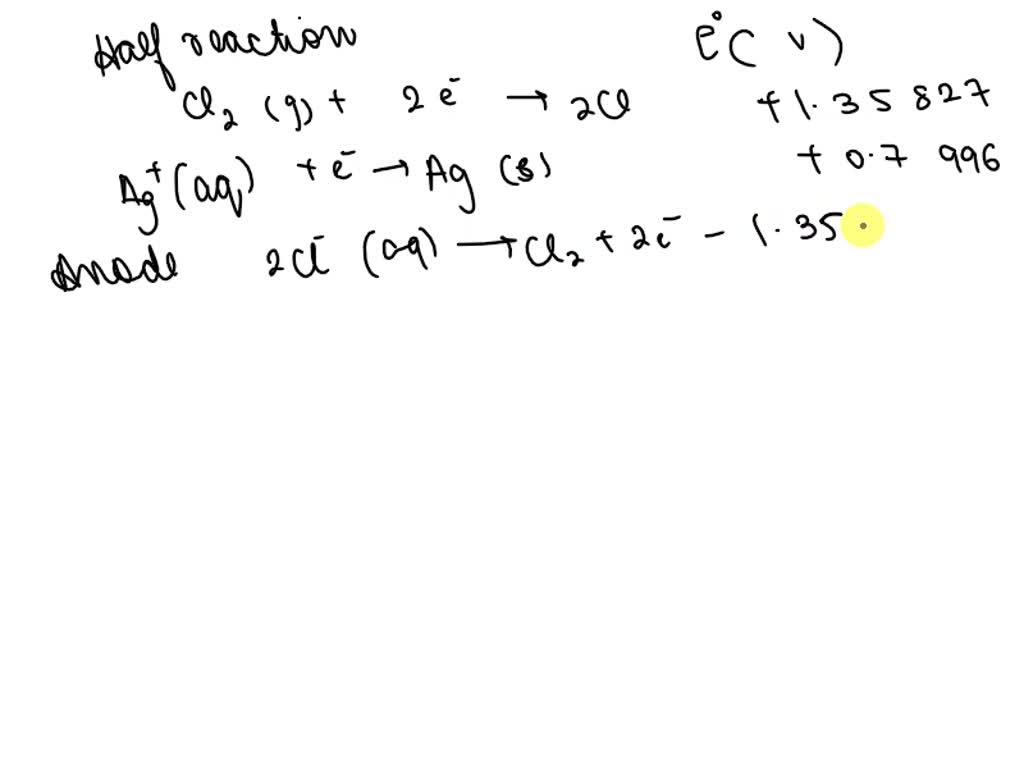 Half reaction E°( V)
Cl₂ (g) + 2 e⁻ → 2Cl +1.35 827
Ag⁺(aq) + e⁻ → Ag (s) + 0.7 996
Anode 2Cl⁻ (aq) → Cl₂ + 2e⁻ - 1.35